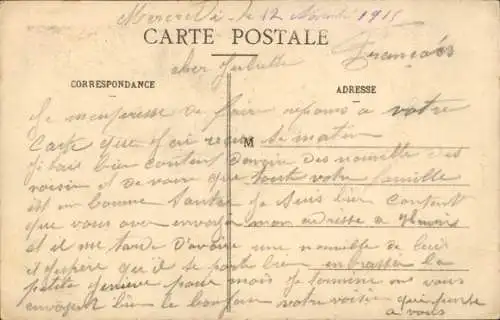 Mercredi le 12 1915
CARTE POSTALE
Français
cher Juliette
CORRESPONDANCE
ADRESSE
Je mempresse de faire repons a votre
Carte que j'ai reçue se matin
M
J'etais bien content davoir des nouvelle des
voisin et de voir que tout votre famille
est en bonne Santer Je suis bien content
que vous aver envoyer mon adresse a
et il me tarde D'avoire une nouvelle de lui
et J'espère qu'il se porte bien embrasser la
petite pour moi Je termine en vous
envoyent bien le bonjour votre voisin qui pense
a vous